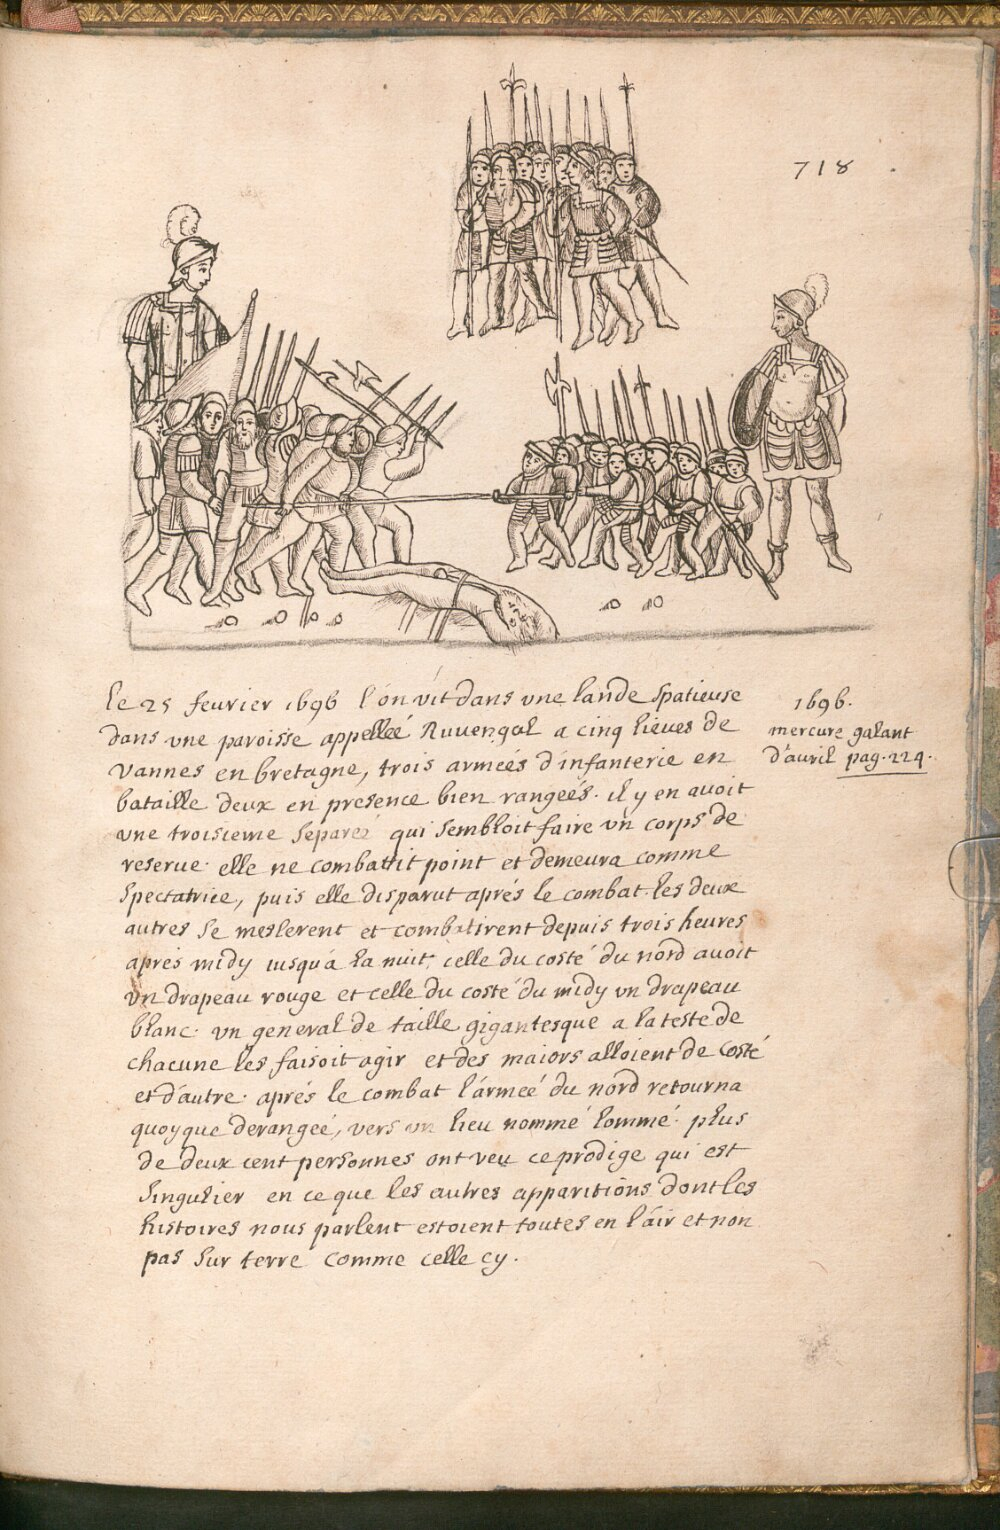 718
le 25 feurier 1696 l'on vit dans vne lande spatieuse
dans vne paroisse appelleé Ruuengal a cinq lieues de
vannes en bretagne, trois armeés d'infanterie en
bataille deux en presence bien rangeés. il y en auoit
vne troisieme separeé qui sembloit faire vn corps de
reserue. elle ne combattit point et demeura comme
spectatrice, puis elle disparut aprés le combat. les deux
autres se meslerent et combatirent depuis trois heures
aprés midy iusqu'a la nuit. celle du costé du nord auoit
vn drapeau rouge et celle du costé du midy vn drapeau
blanc. vn general de taille gigantesque a la teste de
chacune les faisoit agir et des maiors alloient de costé
et d'autre. aprés le combat l'armeé du nord retourna
quoyque derangeé, vers vn lieu nommé lommé. plus
de deux cent personnes ont veu ce prodige qui est
singulier en ce que les autres apparitions dont les
histoires nous parlent estoient toutes en l'air et non
pas sur terre comme celle cy.
1696.
mercure galant
d'auril pag. 229.